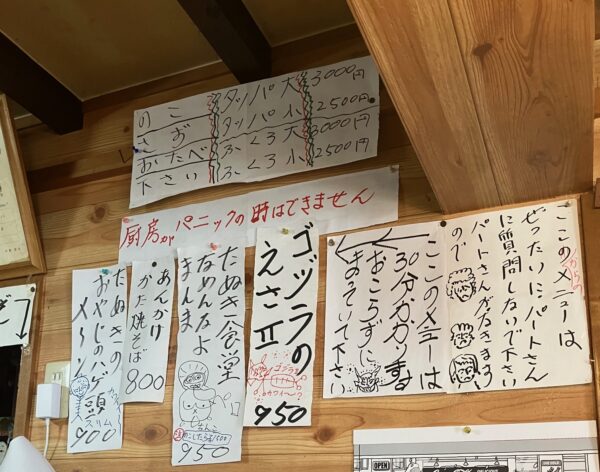 のこ
さず
おたべ
下さい
タッパ大 3000円
タッパ小 2500円
ふくろ大 3000円
ふくろ小 2500円
厨房がパニックの時はできません
ここのメニューは
ぜったいにパートさん
に質問しないで下さい
パートさんがなきます
ので
ここのメニューは
30分かかります
おこらずに
まっていて下さい
ゴヅラの
えさⅡ
ゴジラ
カワイ〜?
950
たぬき食堂
なめんなよ
まんま
950
あんかけ
かた焼そば
800
たぬきの
おやじのハゲ頭
スリム
900
OPEN
DELICIOUS